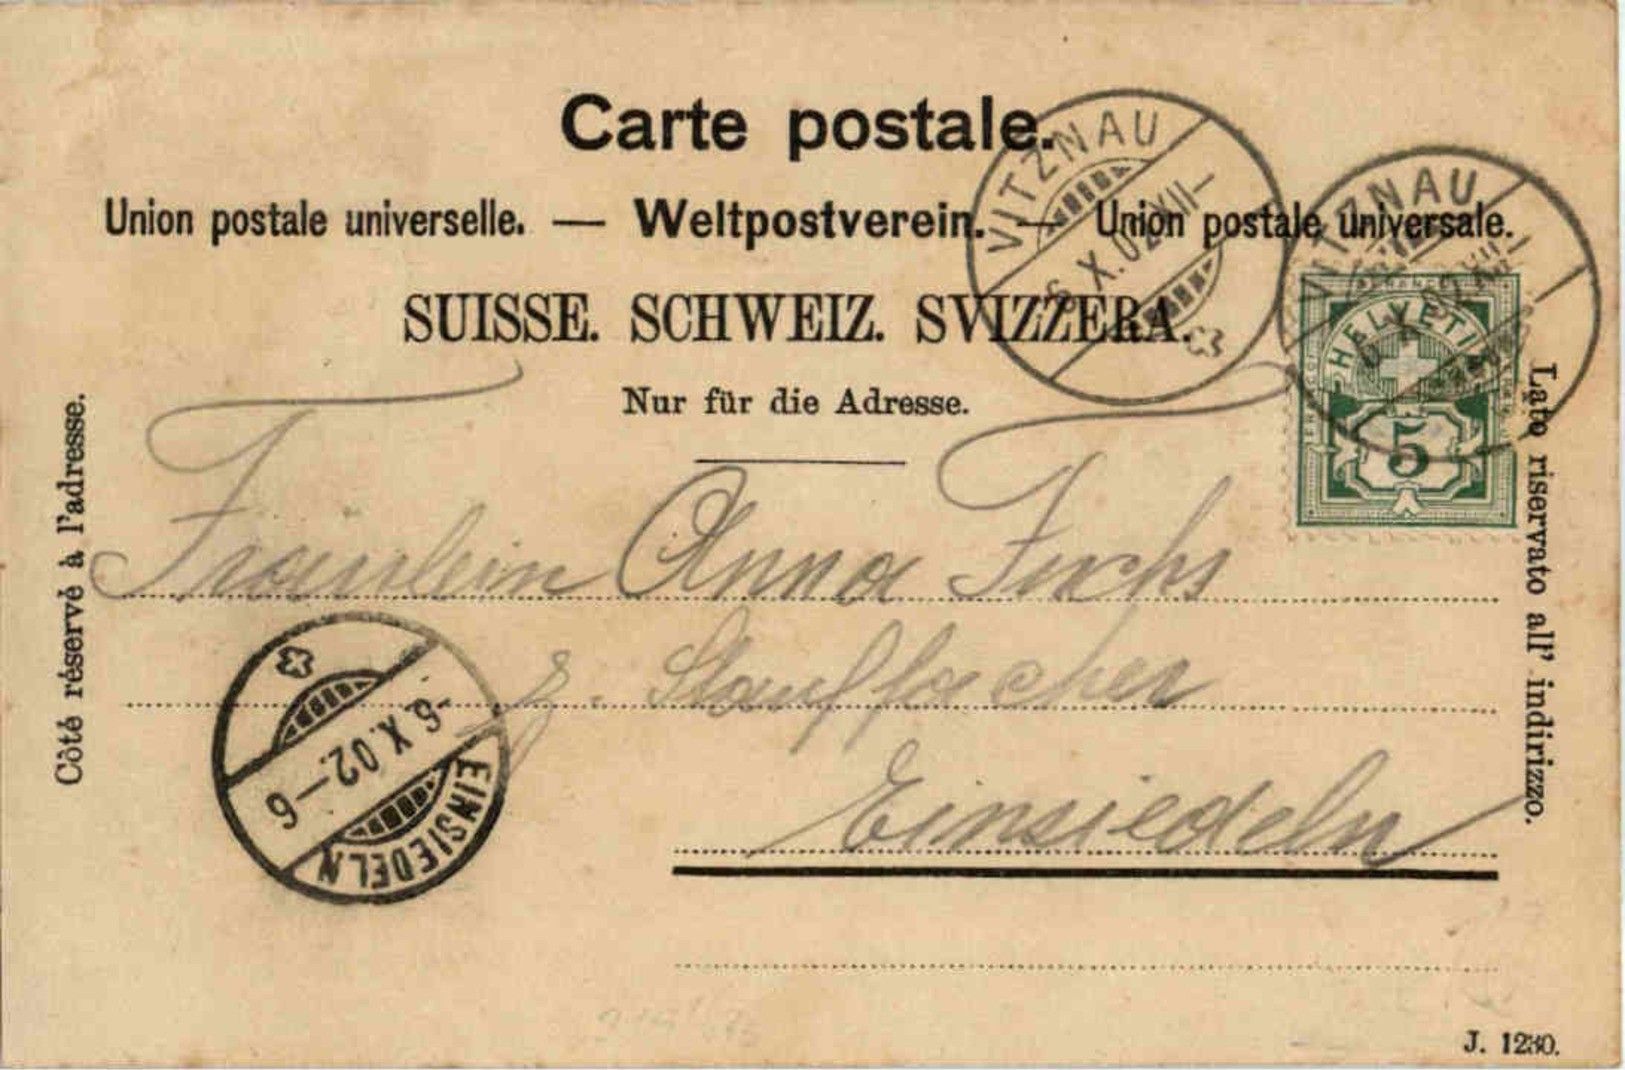 Carte postale.
Union postale universelle. — Weltpostverein. — Union postale universale.
SUISSE. SCHWEIZ. SVIZZERA.
Nur für die Adresse.
VITZNAU
6.X.02.XII—
VITZNAU
HELVETIA
5
Côté réservé à l'adresse.
Lato riservato all' indirizzo.
Fräulein Anna Fuchs
z. Stauffacher
Einsiedeln
-6.X.02.—6
EINSIEDELN
J. 1230.